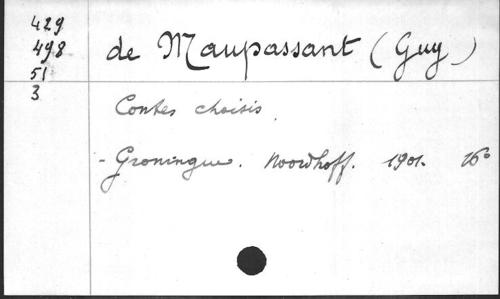 429
498
51
3
de Maupassant (Guy)
Contes choisis.
- Groningue. Noordhoff. 1901. 16º